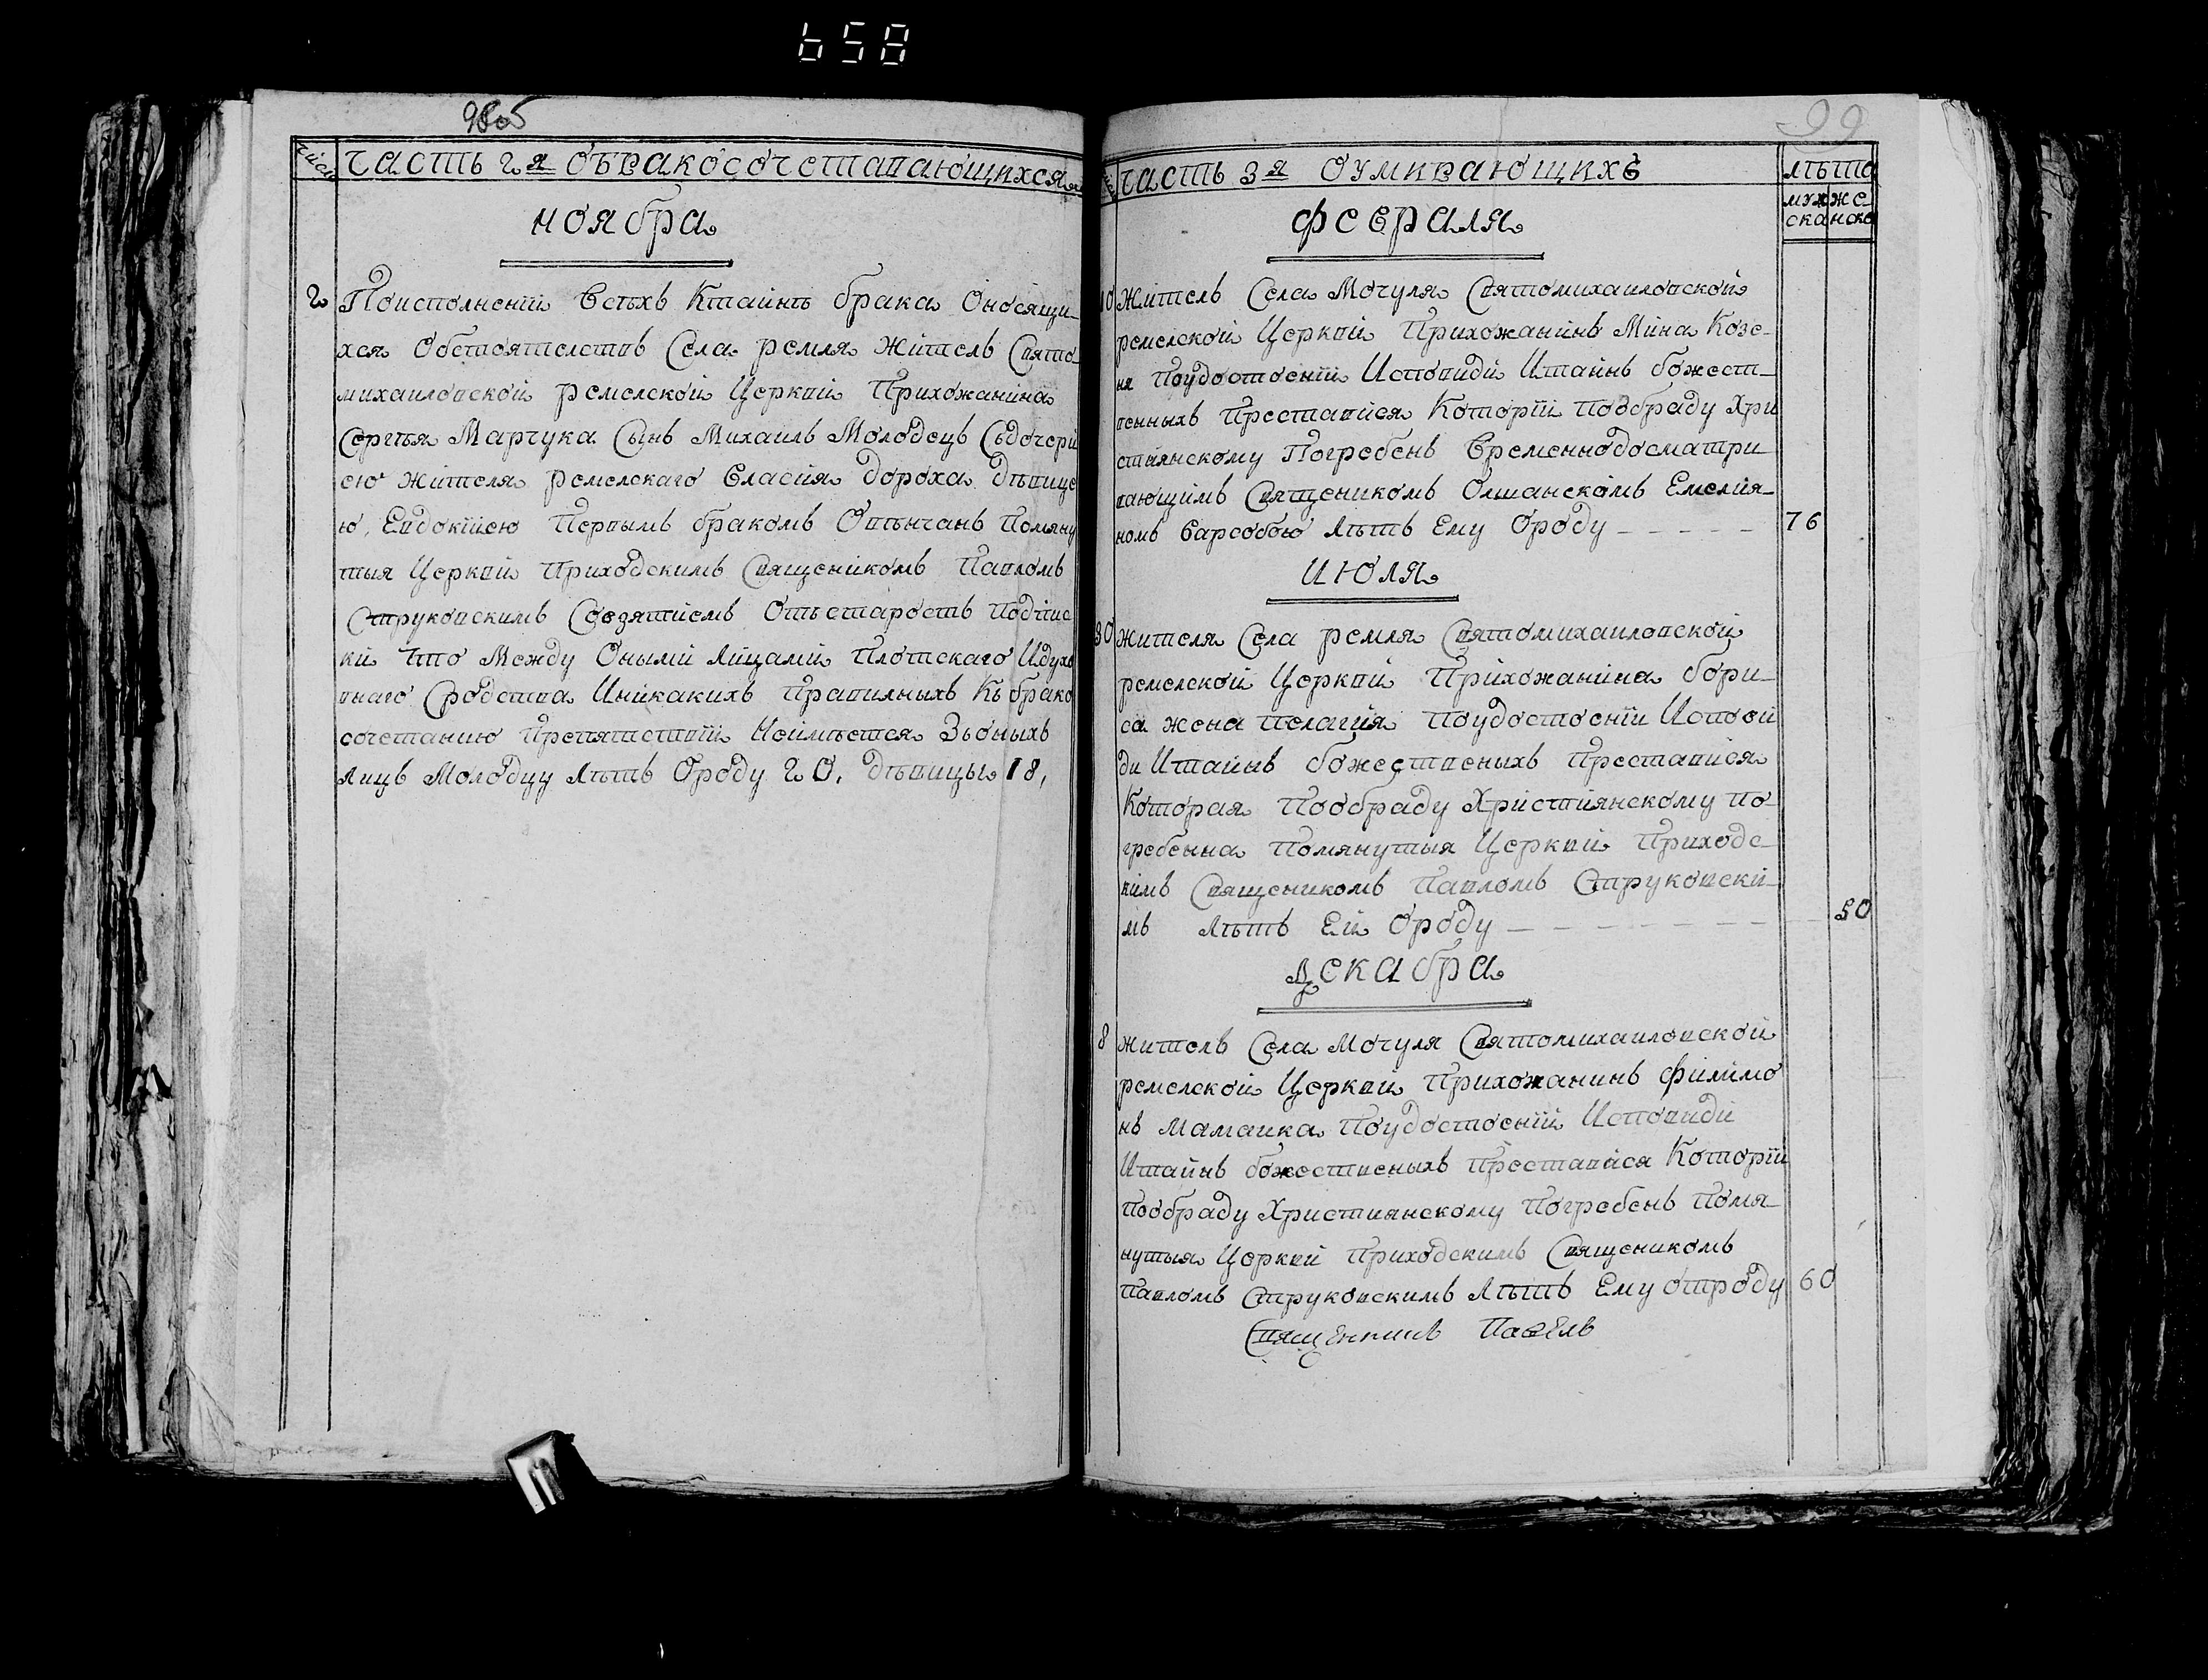 658
98об
числ
часть 2я обракосочетавающихся
ноября
2
Поисполнении Всехъ Ктайнѣ брака Оносящи-
хся Обстоятелствъ Села ремля Жытель Свято
михаиловской ремелской Церкви Прихожанина
Сергѣя Марчука Сынъ Михаилъ Молодецъ Съдочери
ею жителя ремелскаго Власия дороха дѣвице
ю, Евдокиею Первымъ бракомъ Обвѣнчанъ Помяну
тыя Церкви Приходскимъ Священикомъ Павломъ
Струковскимъ Совзятиемъ Отъстаростъ Подпис
ки что Между Оными Лицами Плотскаго Идухо
внаго Сродства Иникакихъ Правилныхъ Къ брако
сочетанию Препятствий Неимѣется Зъоныхъ
Лицъ Молодцу Лѣтъ Ороду 20, дѣвицы 18,
99
часть 3я оумирающихъ
лѣта
муж же
ска нска
февраля
10
Житель Села Мочуля Святомихаиловской
ремелской Церкви Прихожанинъ Мина Козе-
ня Поудостоении Исповиди Итайнъ божест-
венныхъ Преставися Которїи пообраду Хри
стиянскому Погребенъ Временнодосматри
вающимъ Священикомъ Олшанскомъ Емелия-
номъ Баресобою Лѣтъ Ему Ороду
76
июля
30
жителя Села ремля Святомихаиловской
ремелской Церкви Прихожанина бори-
са жена пелагия поудостоении Испови
ди Итайнъ божественыхъ Преставися
Которая Пообраду Християнскому по-
гребенна Помянутыя Церкви Приходс-
кимъ Священикомъ Павломъ Струковски-
мъ лѣтъ Ей Ороду
50
декабра
8
житель Села Мочуля Святомихаиловской
ремелской Церкви Прихожанинъ филимо
нъ Мамаика Поудостоении Исповиди
Итайнъ божественыхъ Преставися Которїи
Пообраду Християнскому Погребенъ Помя-
нутыя Церкви Приходскимъ Священикомъ
Павломъ Струковскимъ Лѣтъ Ему отроду
60
Священникъ Павелъ